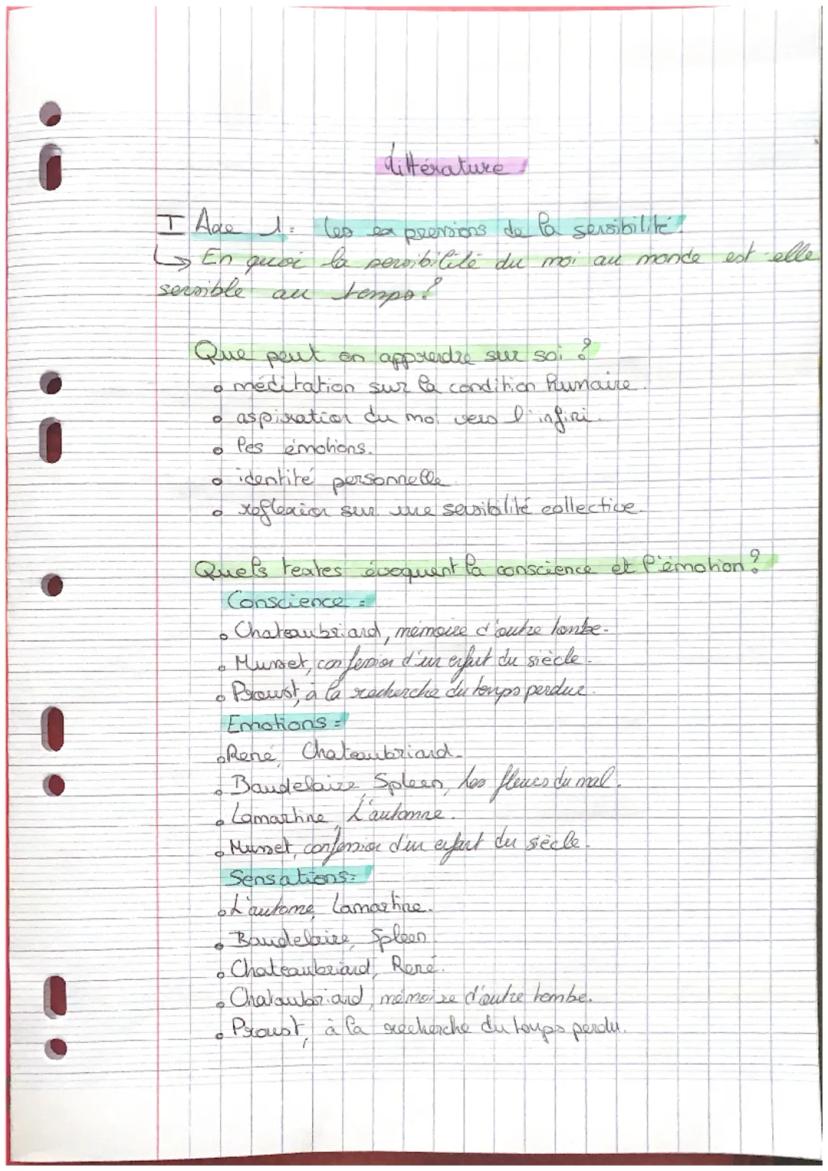 Littérature :
I Axe 1 : Les expressions de la sensibilité.
↳ En quoi la sensibilité du moi au monde est-elle
sensible au temps ?
Que peut on apprendre sur soi ?
• méditation sur la condition humaine.
• aspiration du moi vers l'infini.
• les émotions.
• identité personnelle
• réflexion sur une sensibilité collective.
Quels textes évoquent la conscience et l'émotion ?
Conscience :
• Chateaubriand, mémoire d'outre tombe.
• Musset, confession d'un enfant du siècle.
• Proust, à la recherche du temps perdue.
Emotions :
• René, Chateaubriand.
• Baudelaire, Spleen, Les fleurs du mal.
• Lamartine, L'automne.
• Musset, confession d'un enfant du siècle.
Sensations :
• L'autome, Lamartine.
• Baudelaire, Spleen
• Chateaubriand, René.
• Chataubriand, mémoire d'outre tombe.
• Proust, à la recherche du temps perdu.